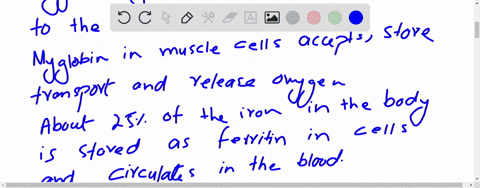 to the
Myglobin in muscle cells accepts, store
transport and release oxygen
About 25% of the iron in the body
is stored as ferritin in cells
and circulates in the blood.